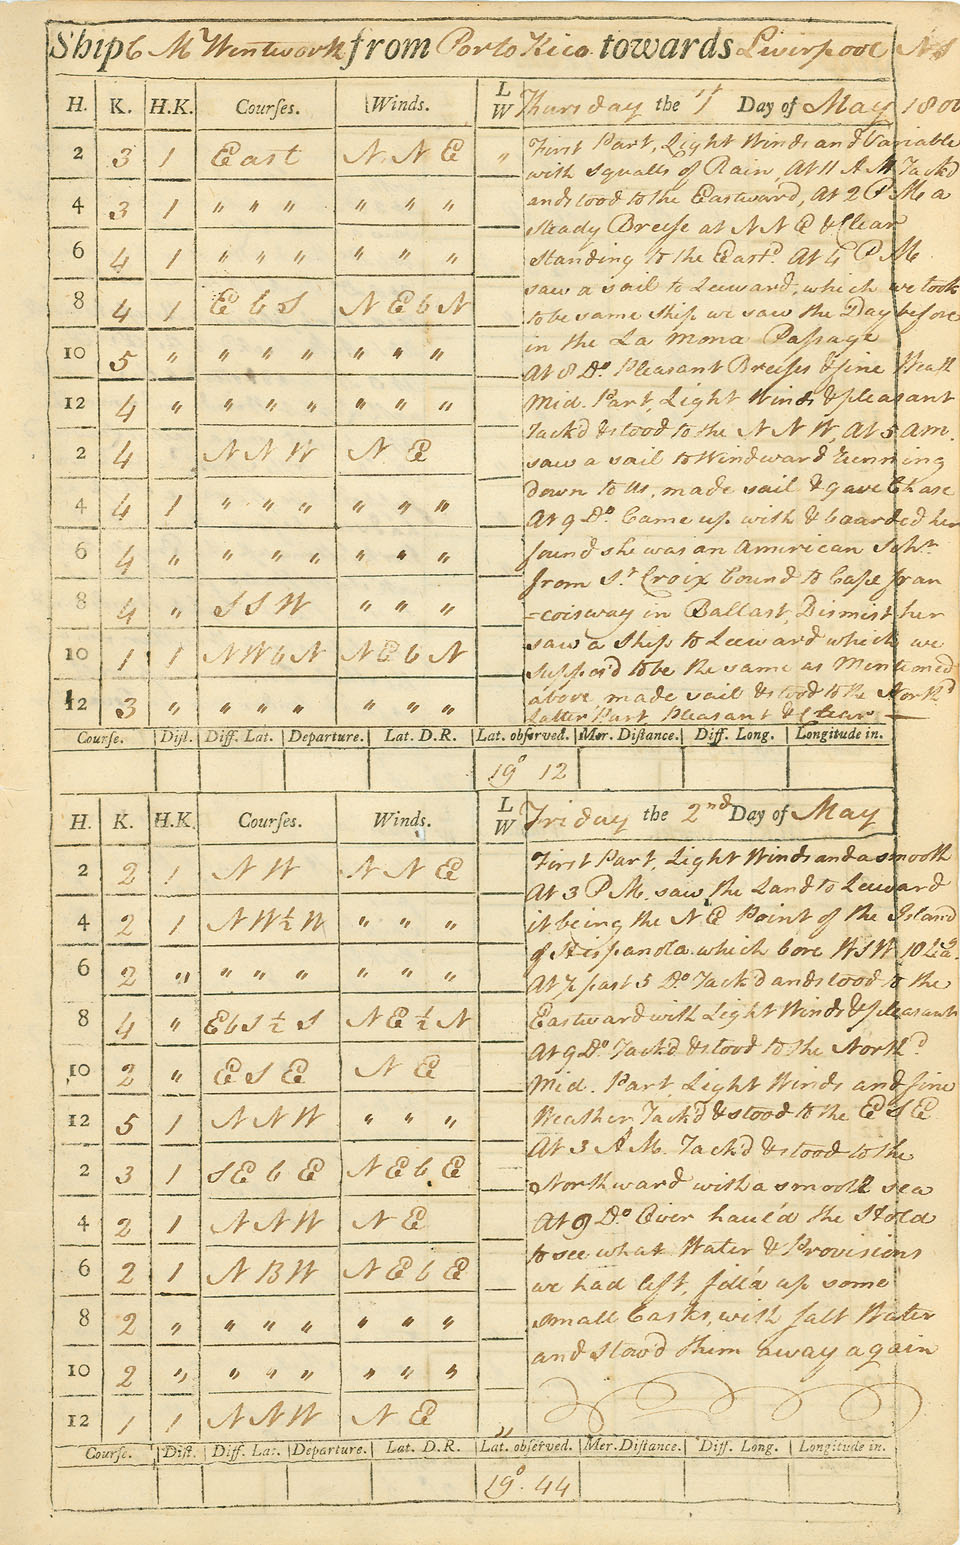 Ship C M Wentworth from Porto Rico towards Liverpool N S
H. K. H.K. Courses. Winds. L W Thursday the 1 Day of May 1800
2 3 1 East N N E "
4 3 1 " " " " " "
6 4 1 " " " " " "
8 4 1 E b S N E b N
10 5 " " " " " " " "
12 4 " " " " " " " "
2 4 N N W N E
4 4 1 " " " " " " "
6 4 " " " " " " " "
8 4 " S S W " " "
10 1 1 N W b N N E b N
12 3 " " " " " " " "
First Part, Light Winds and Variable
with squalls of Rain, At 11 A M Tack'd
and stood to the Eastward, At 2 P M a
steady Breese at N N E & Clear
standing to the Eastd. At 4 P M
saw a sail to Leeward, which we took
to be same ship we saw the Day before
in the La Mona Passage
At 8 Do. Pleasant Breeses & fine Weath
Mid. Part, Light Winds & pleasant
Tack'd & stood to the N N W, At 5 am.
saw a sail to Windward Running
down to us, made sail & gave Chase
At 9 Do. Came up with & boarded her
found she was an American Schr.
from St. Croix bound to Cape fran
=coisway in Ballast, Dismist her
saw a ship to Leeward which we
suppos'd to be the same as Mentioned
above made sail & stood to the Northd
Latter Part Pleasant & Clear —
Course. Dist. Diff. Lat. Departure. Lat. D.R. Lat. observed. Mer. Distance. Diff. Long. Longitude in.
19° 12
H. K. H.K. Courses. Winds. L W Friday the 2nd Day of May
2 2 1 N W N N E
4 2 1 N W ½ W " " "
6 2 " " " " " " " "
8 4 " E b S ½ S N E ½ N
10 2 " E S E N E
12 5 1 N N W " " "
2 3 1 S E b E N E b E
4 2 1 N N W N E
6 2 1 N B W N E b E
8 2 " " " " " " " "
10 2 " " " " " " " "
12 1 1 N N W N E "
First Part, Light Winds and a smooth
At 3 P M. saw the Land to Leeward
it being the N E Point of the Island
of Hispanola which bore W S W 10 Lea.
At ½ past 5 Do Tack'd and stood to the
Eastward with Light Winds & pleasant
At 9 Do. Tack'd & stood to the Northd.
Mid. Part Light Winds and fine
Weather Tack'd & stood to the E S E
At 3 A M. Tack'd & stood to the
Northward with a smooth sea
At 9 Do. Over haul'd the Hold
to see what Water & Provisions
we had left, fill'd up some
small Casks, with salt Water
and stow'd them away again
Course. Dist. Diff. Lat. Departure. Lat. D.R. Lat. observed. Mer. Distance. Diff. Long. Longitude in.
19° . 44